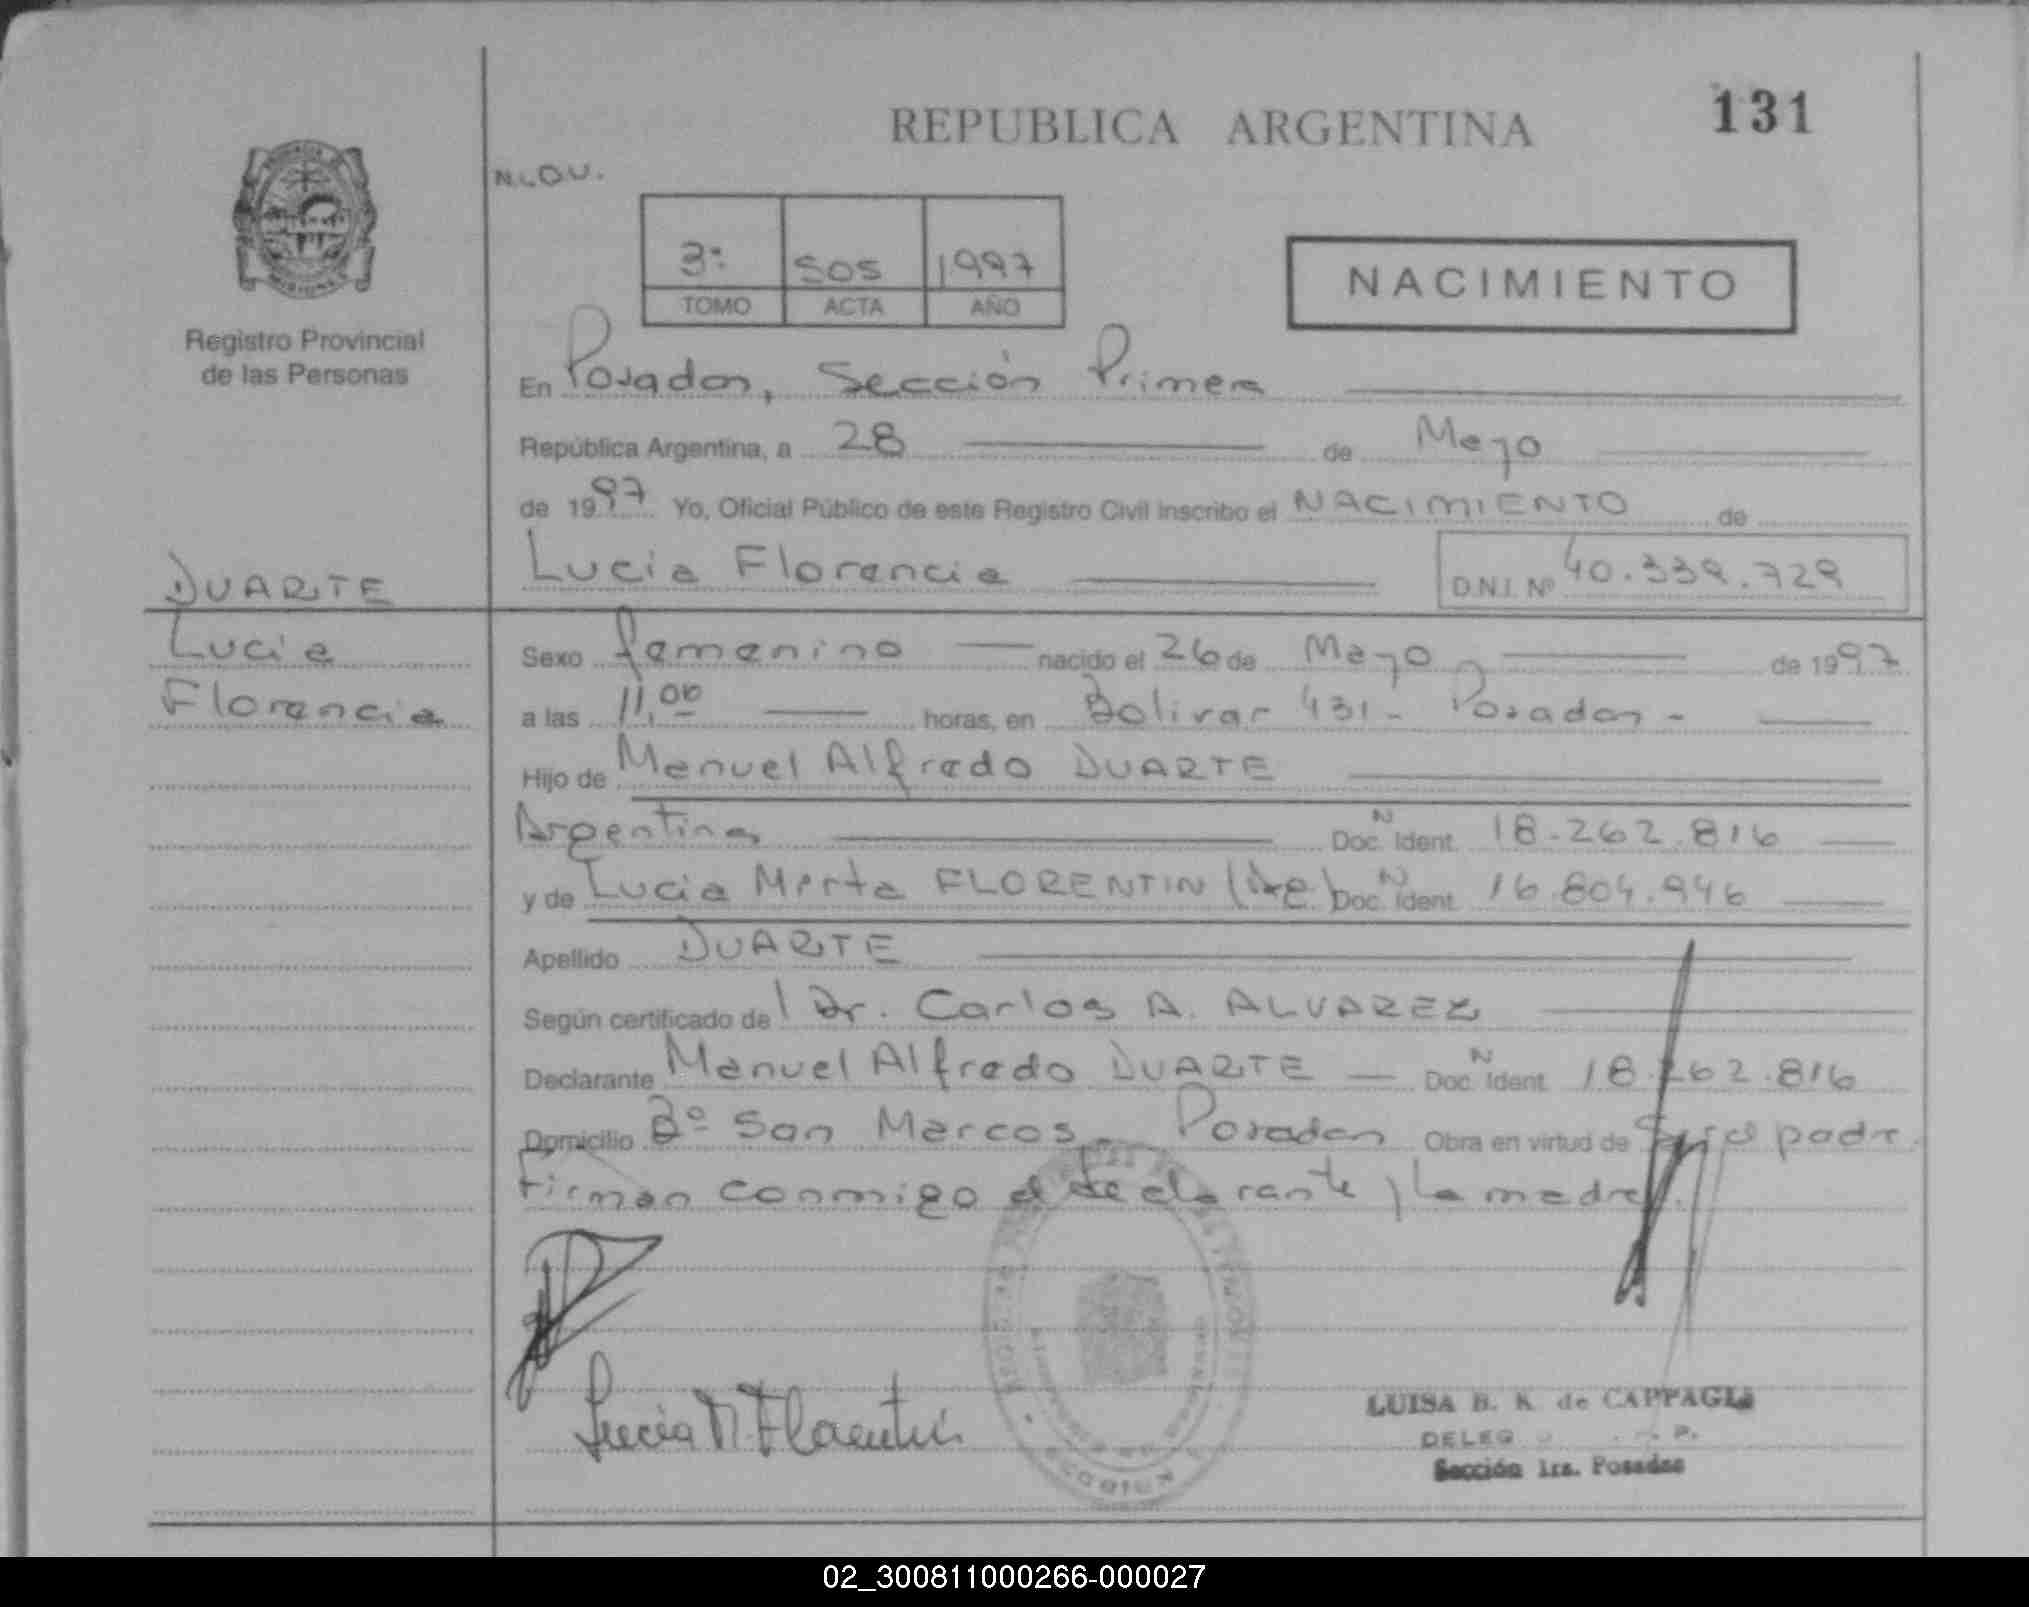 REPUBLICA ARGENTINA
131
N.L.O.U.
3º 505 1997
TOMO ACTA AÑO
NACIMIENTO
Registro Provincial
de las Personas
En Posadas, Sección Primera
República Argentina, a 28 de Mayo
de 1997 Yo, Oficial Público de este Registro Civil inscribo el NACIMIENTO de
Lucia Florencia D.N.I. Nº 40.339.729
DUARTE
Lucia
Florencia
Sexo femenino nacido el 26 de Mayo de 1997
a las 11,00 horas, en Bolivar 431 - Posadas -
Hijo de Manuel Alfredo DUARTE
Argentina Doc. N Ident. 18.262.816
y de Lucia Marta FLORENTIN Doc. N Ident. 16.804.946
Apellido DUARTE
Según certificado del Dr. Carlos A. ALVAREZ
Declarante Manuel Alfredo DUARTE Doc. N Ident. 18.262.816
Domicilio Bº San Marcos - Posadas Obra en virtud de padre.
Firman conmigo el declarante y la madre.
Lucia M. Florentin
LUISA B. K. de CAPPAGLI
DELEG
Sección 1ra. Posadas
02_300811000266-000027